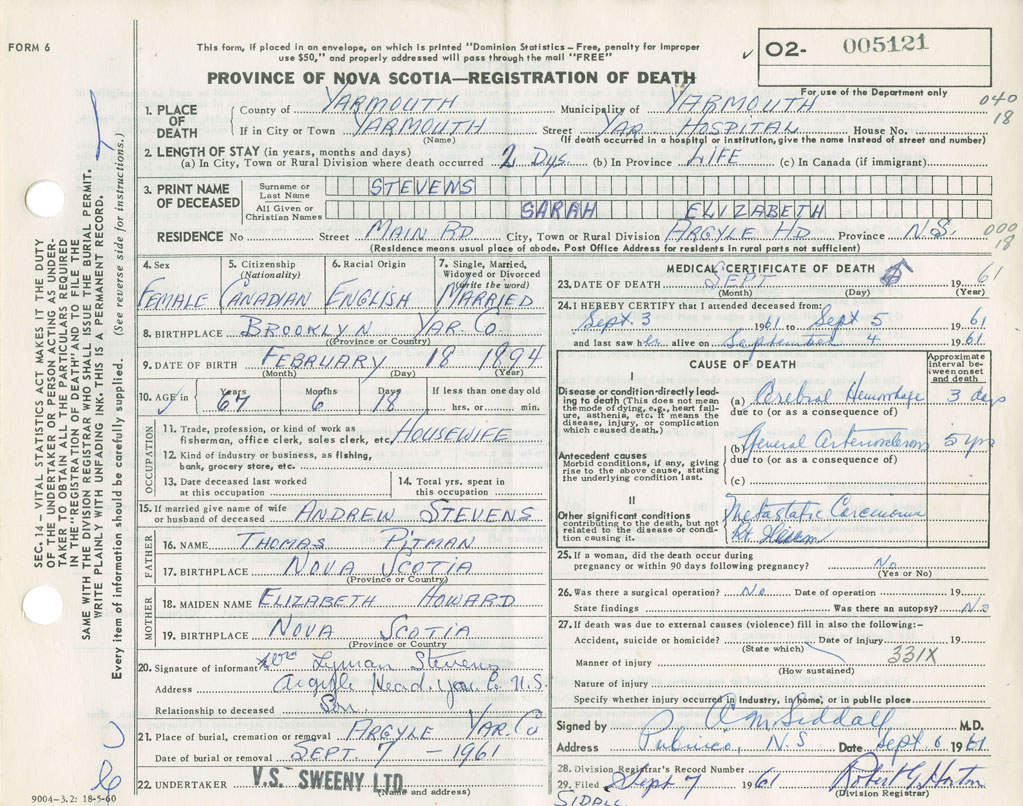 FORM 6
This form, if placed in an envelope, on which is printed "Dominion Statistics – Free, penalty for improper
use $50," and properly addressed will pass through the mail "FREE"
O2- 005121
PROVINCE OF NOVA SCOTIA—REGISTRATION OF DEATH
For use of the Department only
1. PLACE OF DEATH
County of YARMOUTH Municipality of YARMOUTH 040
If in City or Town YARMOUTH Street YAR. HOSPITAL House No. 18
(Name) (If death occurred in a hospital or institution, give the name instead of street and number)
2. LENGTH OF STAY (in years, months and days)
(a) In City, Town or Rural Division where death occurred 2 Dys. (b) In Province LIFE (c) In Canada (if immigrant)
3. PRINT NAME OF DECEASED
Surname or Last Name STEVENS
All Given or Christian Names SARAH ELVIZABETH
RESIDENCE No Street MAIN RD City, Town or Rural Division ARGYLE HD Province N.S. 000
18
(Residence means usual place of abode. Post Office Address for residents in rural parts not sufficient)
4. Sex FEMALE
5. Citizenship (Nationality) CANADIAN
6. Racial Origin ENGLISH
7. Single, Married, Widowed or Divorced (write the word) MARRIED
8. BIRTHPLACE BROOKLYN YAR. CO.
(Province or Country)
9. DATE OF BIRTH FEBRUARY 18 1894
(Month) (Day) (Year)
10. AGE in Years 67 Months 6 Days 18 If less than one day old
hrs. or min.
OCCUPATION
11. Trade, profession, or kind of work as
fisherman, office clerk, sales clerk, etc. HOUSEWIFE
12. Kind of industry or business, as fishing,
bank, grocery store, etc.
13. Date deceased last worked
at this occupation
14. Total yrs. spent in
this occupation
15. If married give name of wife
or husband of deceased ANDREW STEVENS
FATHER
16. NAME THOMAS PITMAN
17. BIRTHPLACE NOVA SCOTIA
(Province or Country)
MOTHER
18. MAIDEN NAME ELIZABETH HOWARD
19. BIRTHPLACE NOVA SCOTIA
(Province or Country)
20. Signature of informant Wm Lyman Stevens
Address Argyle Head. Yar. Co N.S.
Relationship to deceased Son
21. Place of burial, cremation or removal ARGYLE YAR. CO
Date of burial or removal SEPT. 7 – 1961
22. UNDERTAKER V.S. SWEENY LTD.
(Name and address)
9004–3.2: 18-5-60
MEDICAL CERTIFICATE OF DEATH
23. DATE OF DEATH SEPT 5 1961
(Month) (Day) (Year)
24. I HEREBY CERTIFY that I attended deceased from:
Sept. 3 1961 to Sept 5 1961
and last saw her alive on September 4 1961.
CAUSE OF DEATH
Approximate interval between onset and death
I
Disease or condition directly leading to death (This does not mean the mode of dying, e.g., heart failure, asthenia, etc. It means the disease, injury, or complication which caused death.)
(a) Cerebral Hemorrhage 3 days
due to (or as a consequence of)
Antecedent causes
Morbid conditions, if any, giving rise to the above cause, stating the underlying condition last.
(b) General Arteriosclerosis 5 yrs
due to (or as a consequence of)
(c)
II
Other significant conditions
contributing to the death, but not related to the disease or condition causing it.
Metastatic Carcinoma
Rt
25. If a woman, did the death occur during
pregnancy or within 90 days following pregnancy? No
(Yes or No)
26. Was there a surgical operation? No Date of operation 19
State findings Was there an autopsy? No
27. If death was due to external causes (violence) fill in also the following:-
Accident, suicide or homicide? Date of injury 19
(State which) 331X
Manner of injury
(How sustained)
Nature of injury
Specify whether injury occurred in industry, in home, or in public place
Signed by A M Siddall M.D.
Address Pubnico, N.S Date Sept. 6 1961
28. Division Registrar's Record Number
29. Filed Sept 7 1961 Robert G. Horton
(Division Registrar)
SIDALL
SEC. 14 – VITAL STATISTICS ACT MAKES IT THE DUTY
OF THE UNDERTAKER OR PERSON ACTING AS UNDER-
TAKER TO OBTAIN ALL THE PARTICULARS REQUIRED
IN THE "REGISTRATION OF DEATH" AND TO FILE THE
SAME WITH THE DIVISION REGISTRAR WHO SHALL ISSUE THE BURIAL PERMIT.
WRITE PLAINLY WITH UNFADING INK. THIS IS A PERMANENT RECORD.
Every item of information should be carefully supplied. (See reverse side for instructions.)